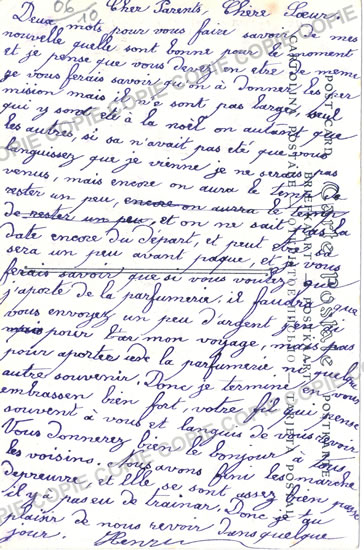 06
10
Cher Parents, Chère Sœur
Deux mots pour vous faire savoir de mes
nouvelle quelle sont bonne pour le moment
et je pense que vous devez en être de meme
je vous ferais savoir qu'on a donner les per
mision mais il n'e sont pas larges, seul
qui y sont été à la noël on autant que
les autres, si sa n'avait pas été que vous
languissez que je vienne je ne serais pas
venus, mais encore on aura le temp de
rester un peu, encore on aurra le temp
de rester un peu, et on ne sait pas la
date encore du départ, et peut être sa
sera un peu avant paque, et je vous
ferais savoir, que si vous voulez que
j'aporte de la parfumerie, il faudra que
vous envoyez un peu d'argent, pas
pour mon voyage, mais pas
pour aporter de la parfumerie ni quelque
autre souvenir. Donc je termine en vous
embrassen bien fort, votre fils qui pense
souvent à vous et languis de vous revoir
Vous donnerez bien le bonjour à tous
les voisins. Nous avons fini les marche
depreuve, et elle se sont assez bien passé
il y a pas eu de trainar. Donc je
plaisir de nous revoir dans quelque
jour. Henri
POST CARD
Carte postale
CARTOLINA POSTALE
BRIEFKAART
POSTKARTE
COPIE COPIE COPIE COPIE